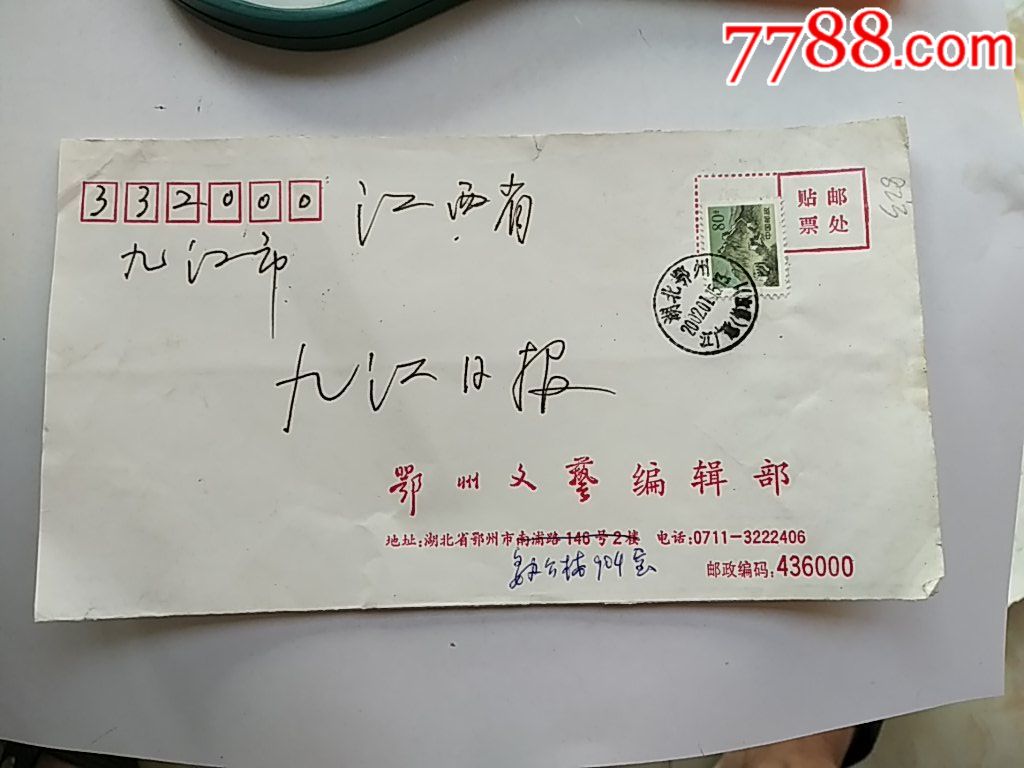 7788.com
332000 江西省
贴邮
票处
8.28
80分
中国邮政
九江市
湖北鄂州
2002.01.15
九江日报
鄂州文艺编辑部
地址:湖北省鄂州市南浦路146号2楼 电话:0711-3222406
办公楼904室
邮政编码:436000